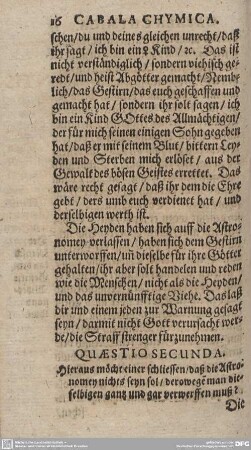 16 CABALA CHYMICA.
schen/du und deines gleichen unrecht/daß
ihr sagt / ich bin ein ♄ Kind / ꝛc. Das ist
nicht verständiglich / sondern viehisch ge-
redt/und heist Abgötter gemacht/Nemb-
lich/das Gestirn/das euch geschaffen und
gemacht hat / sondern ihr solt sagen / ich
bin ein Kind GOttes des Allmächtigen/
der für mich seinen einigen Sohn gegeben
hat/daß er mit seinem Blut/ bittern Ley-
den und Sterben mich erlöset / aus der
Gewalt des bösen Geistes errettet. Das
wäre recht gesagt/ daß ihr dem die Ehre
gebt / ders umb euch verdienet hat / und
derselbigen werth ist.
Die Heyden haben sich auff die Astro-
nomey verlassen / haben sich dem Gestirn
unterworffen/uñ dieselbe für ihre Götter
gehalten/ihr aber solt handlen und reden
wie die Menschen/ nicht als die Heyden/
und das unvernünfftige Viehe. Das laß
dir und einem jeden zur Warnung gesagt
seyn / darmit nicht Gott verursacht wer-
de/die Straff strenger fürzunehmen.
QUÆSTIO SECUNDA.
Hieraus möcht einer schliessen/ daß die Astro-
nomey nichts seyn sol/ derowegē man die-
selbigen gantz und gar verwerffen muß?
Die